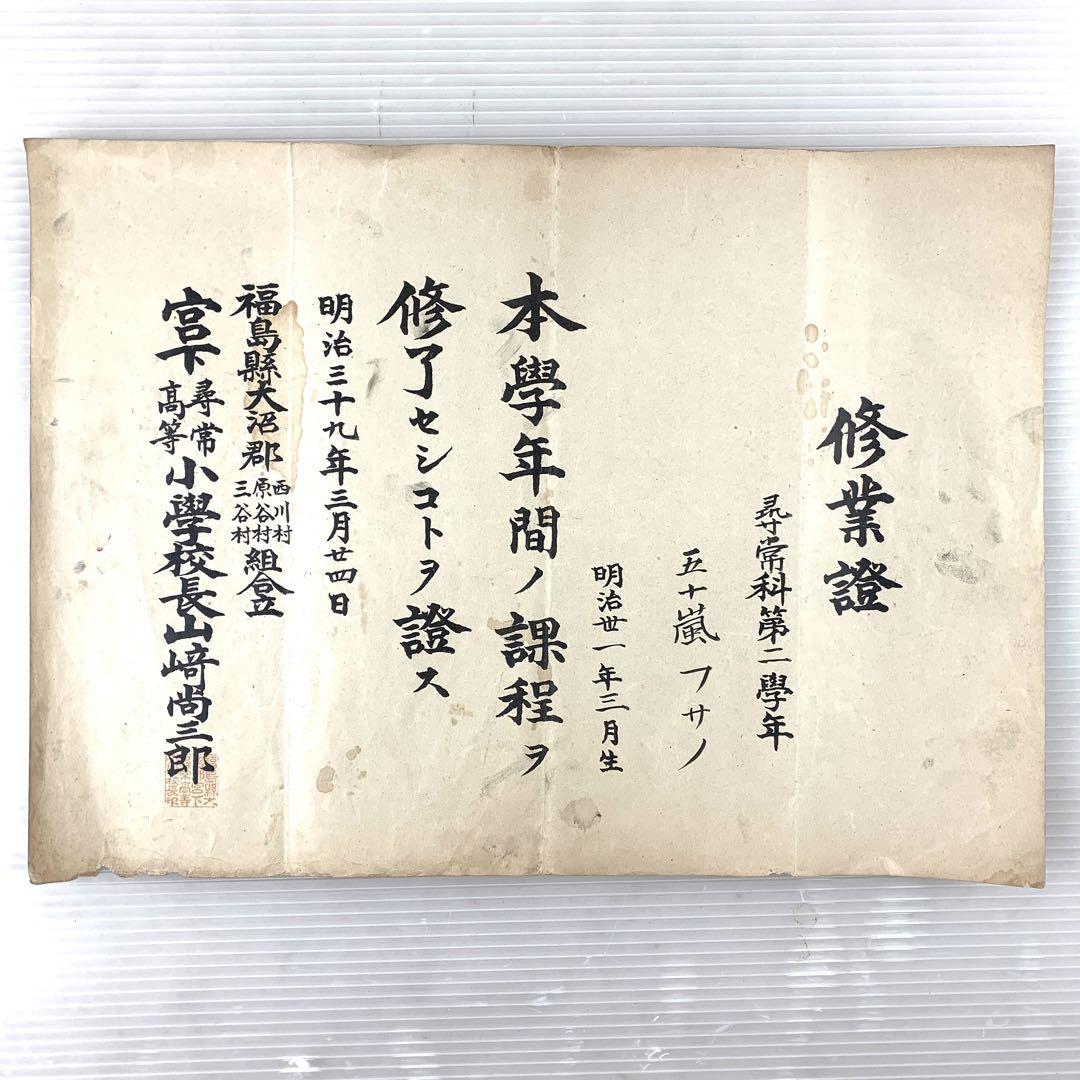 修業證
尋常科第二學年
五十嵐フサノ
明治丗一年三月生
本學年間ノ課程ヲ
修了セシコトヲ證ス
明治三十九年三月廿四日
福島縣大沼郡西川村原谷村三谷村組合立
宮下尋常高等小學校長山﨑尚三郎